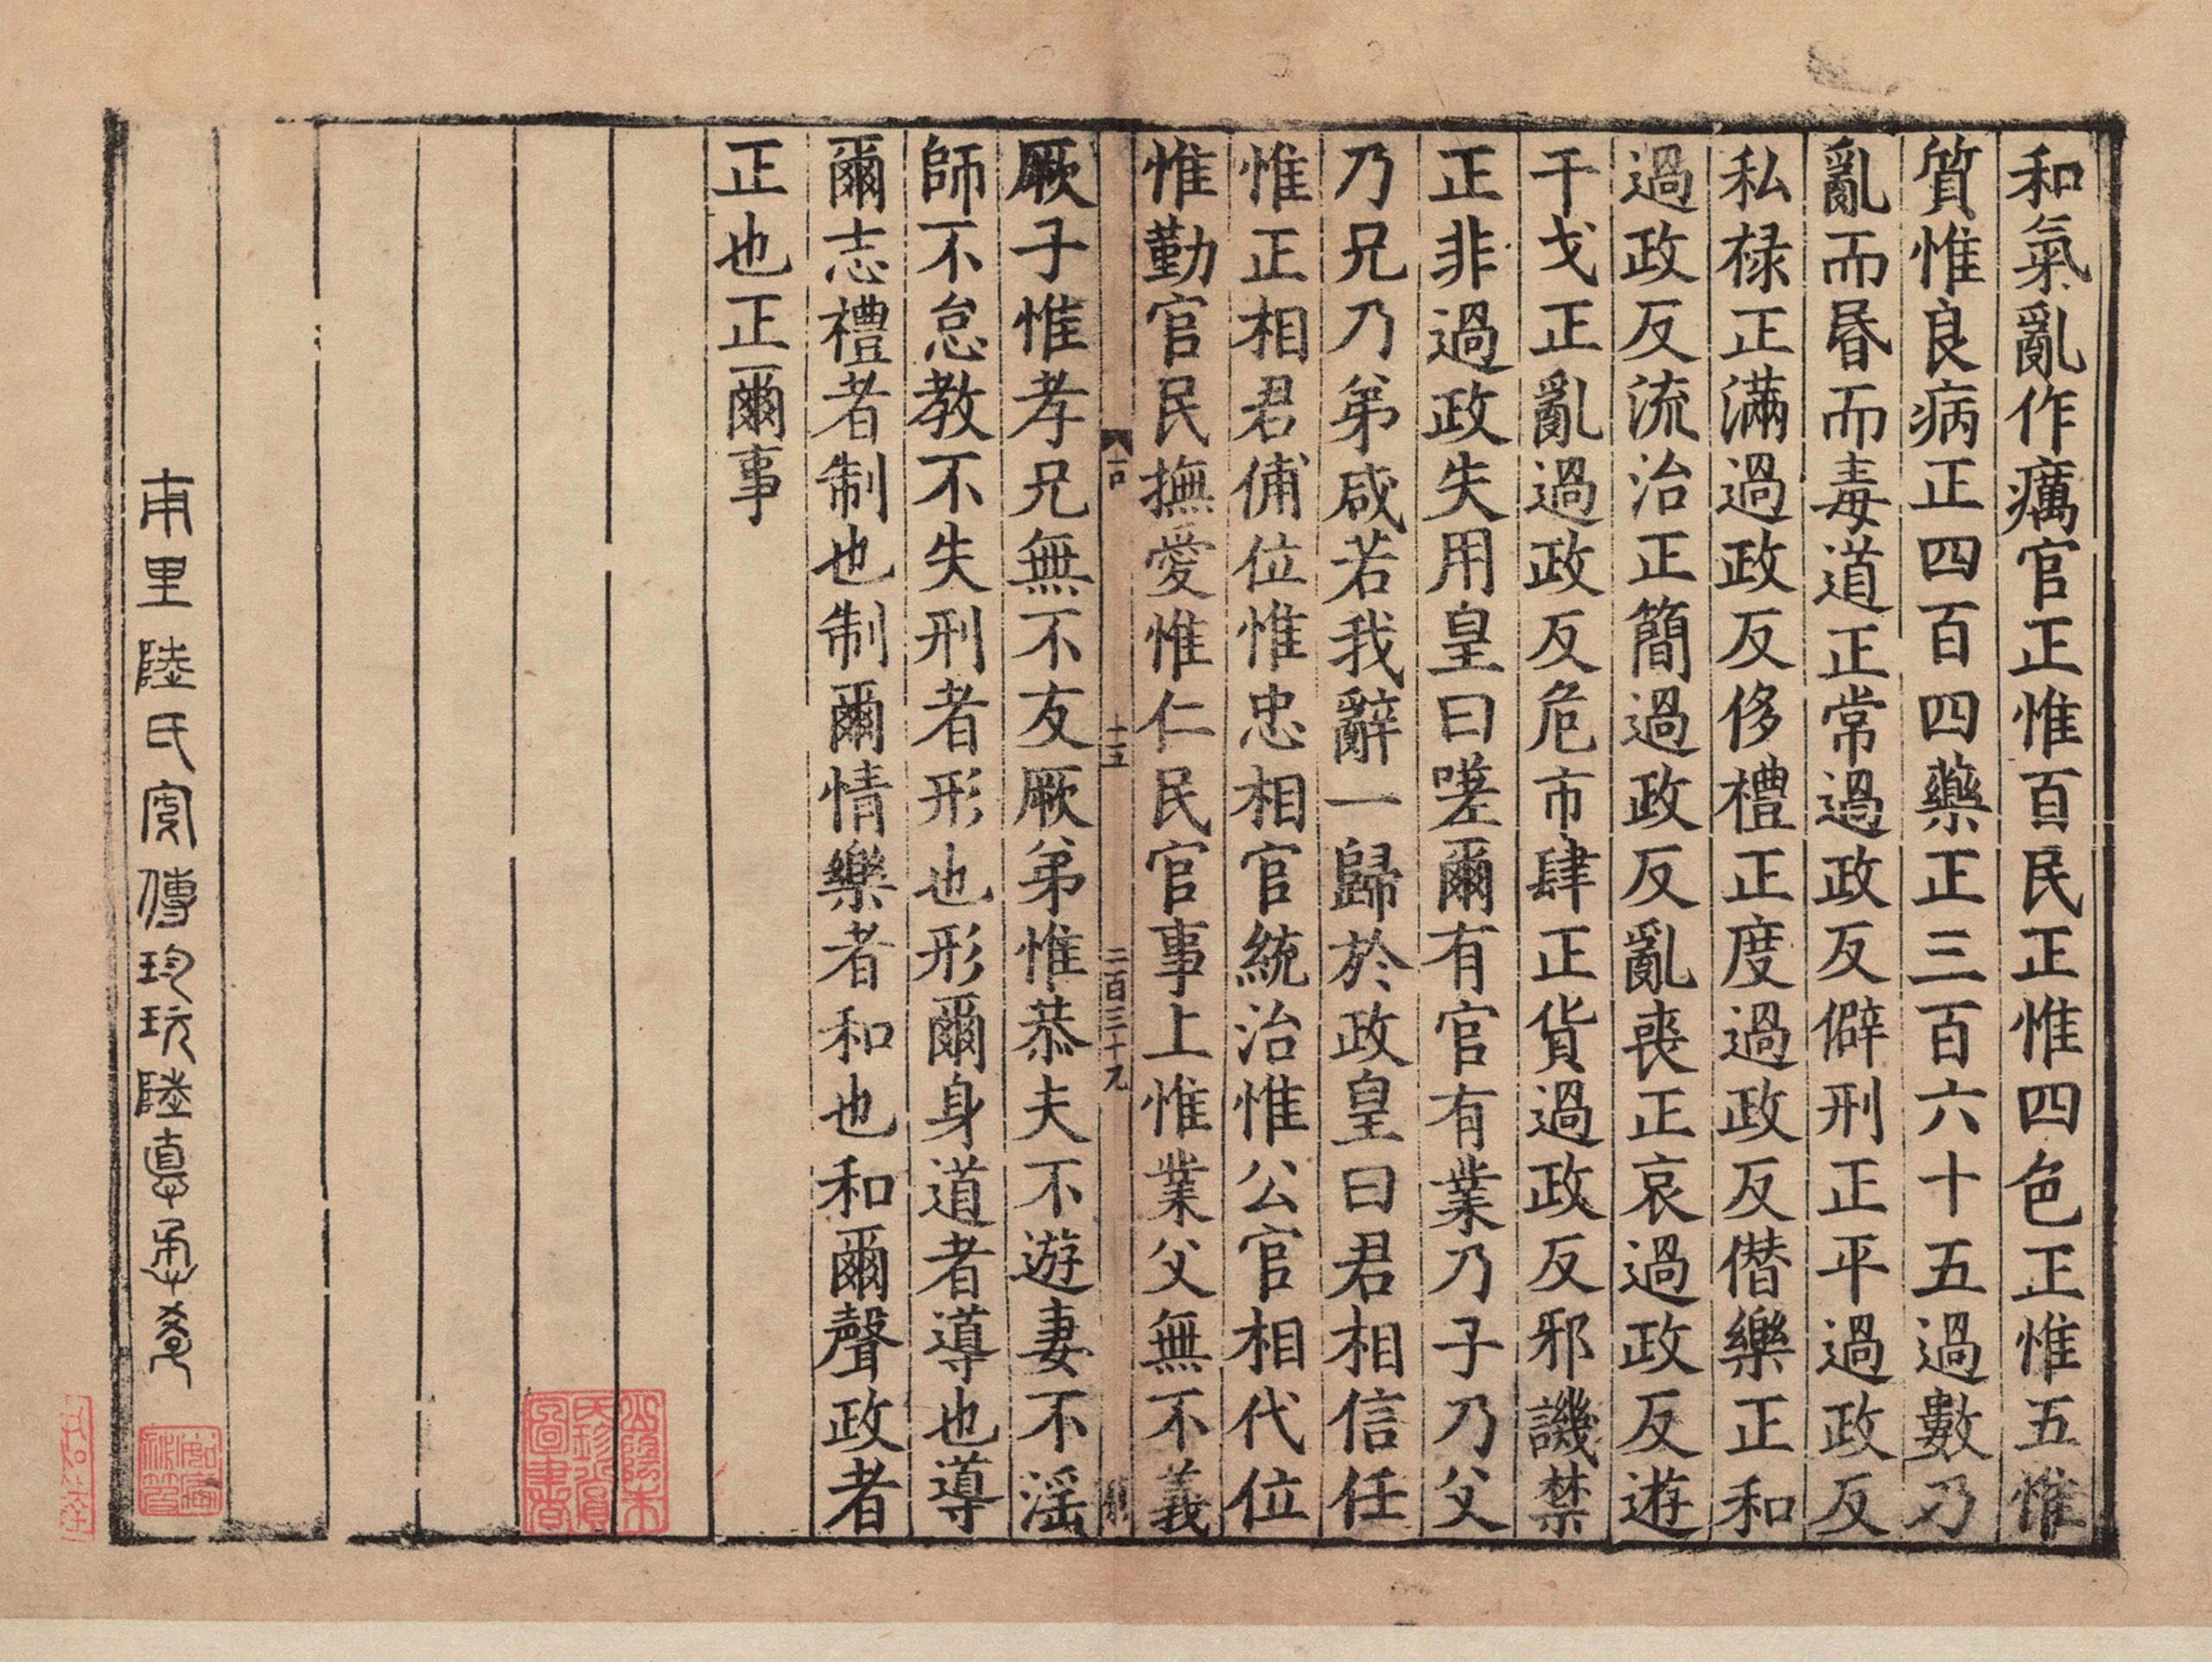 和氣亂作癘官正惟百民正惟四色正惟五惟
質惟良病正四百四藥正三百六十五過數乃
亂而昬而毒道正常過政反僻刑正平過政反
私禄正滿過政反侈禮正度過政反僭樂正和
過政反流治正簡過政反亂喪正哀過政反遊
干戈正亂過政反危市肆正貨過政反邪譏禁
正非過政失用皇曰嗟爾有官有業乃子乃父
乃兄乃弟咸若我辭一歸於政皇曰君相信任
惟正相君備位惟忠相官統治惟公官相代位
惟勤官民撫愛惟仁民官事上惟業父無不義
十五
二百三十九
厥子惟孝兄無不友厥弟惟恭夫不遊妻不淫
師不怠教不失刑者形也形爾身道者導也導
爾志禮者制也制爾情樂者和也和爾聲政者
正也正爾事
甫里陸氏家傳珍玩陸